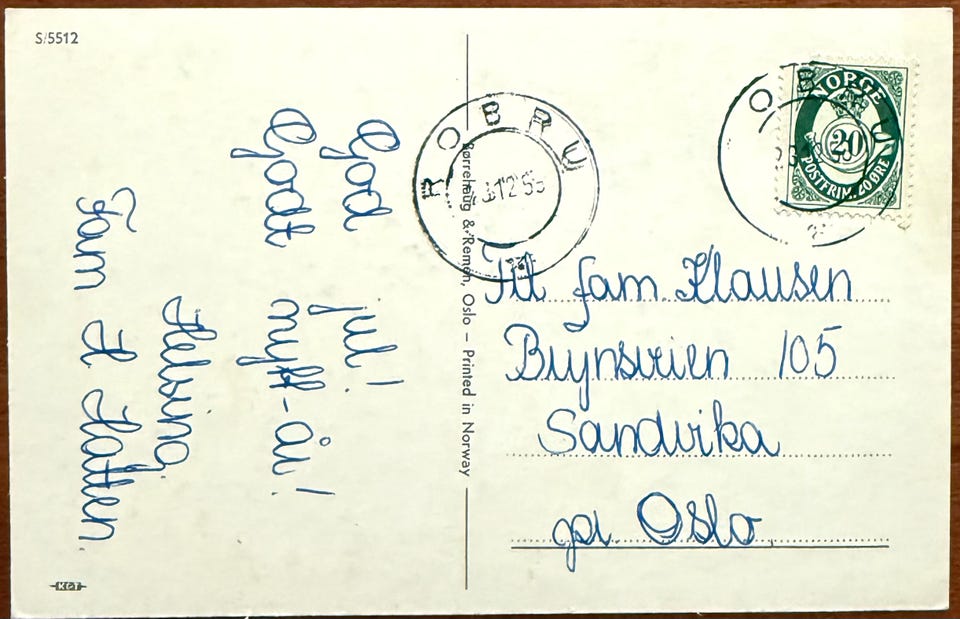 S/5512
God jul!
Godt nytt-år!
Helsing
Fam H Hatten.
Børrehaug & Remen, Oslo – Printed in Norway
NORGE
20
POSTFRIM. 20 ØRE
Till fam Klausen
Brynsveien 105
Sandvika
pr. Oslo.
K&T